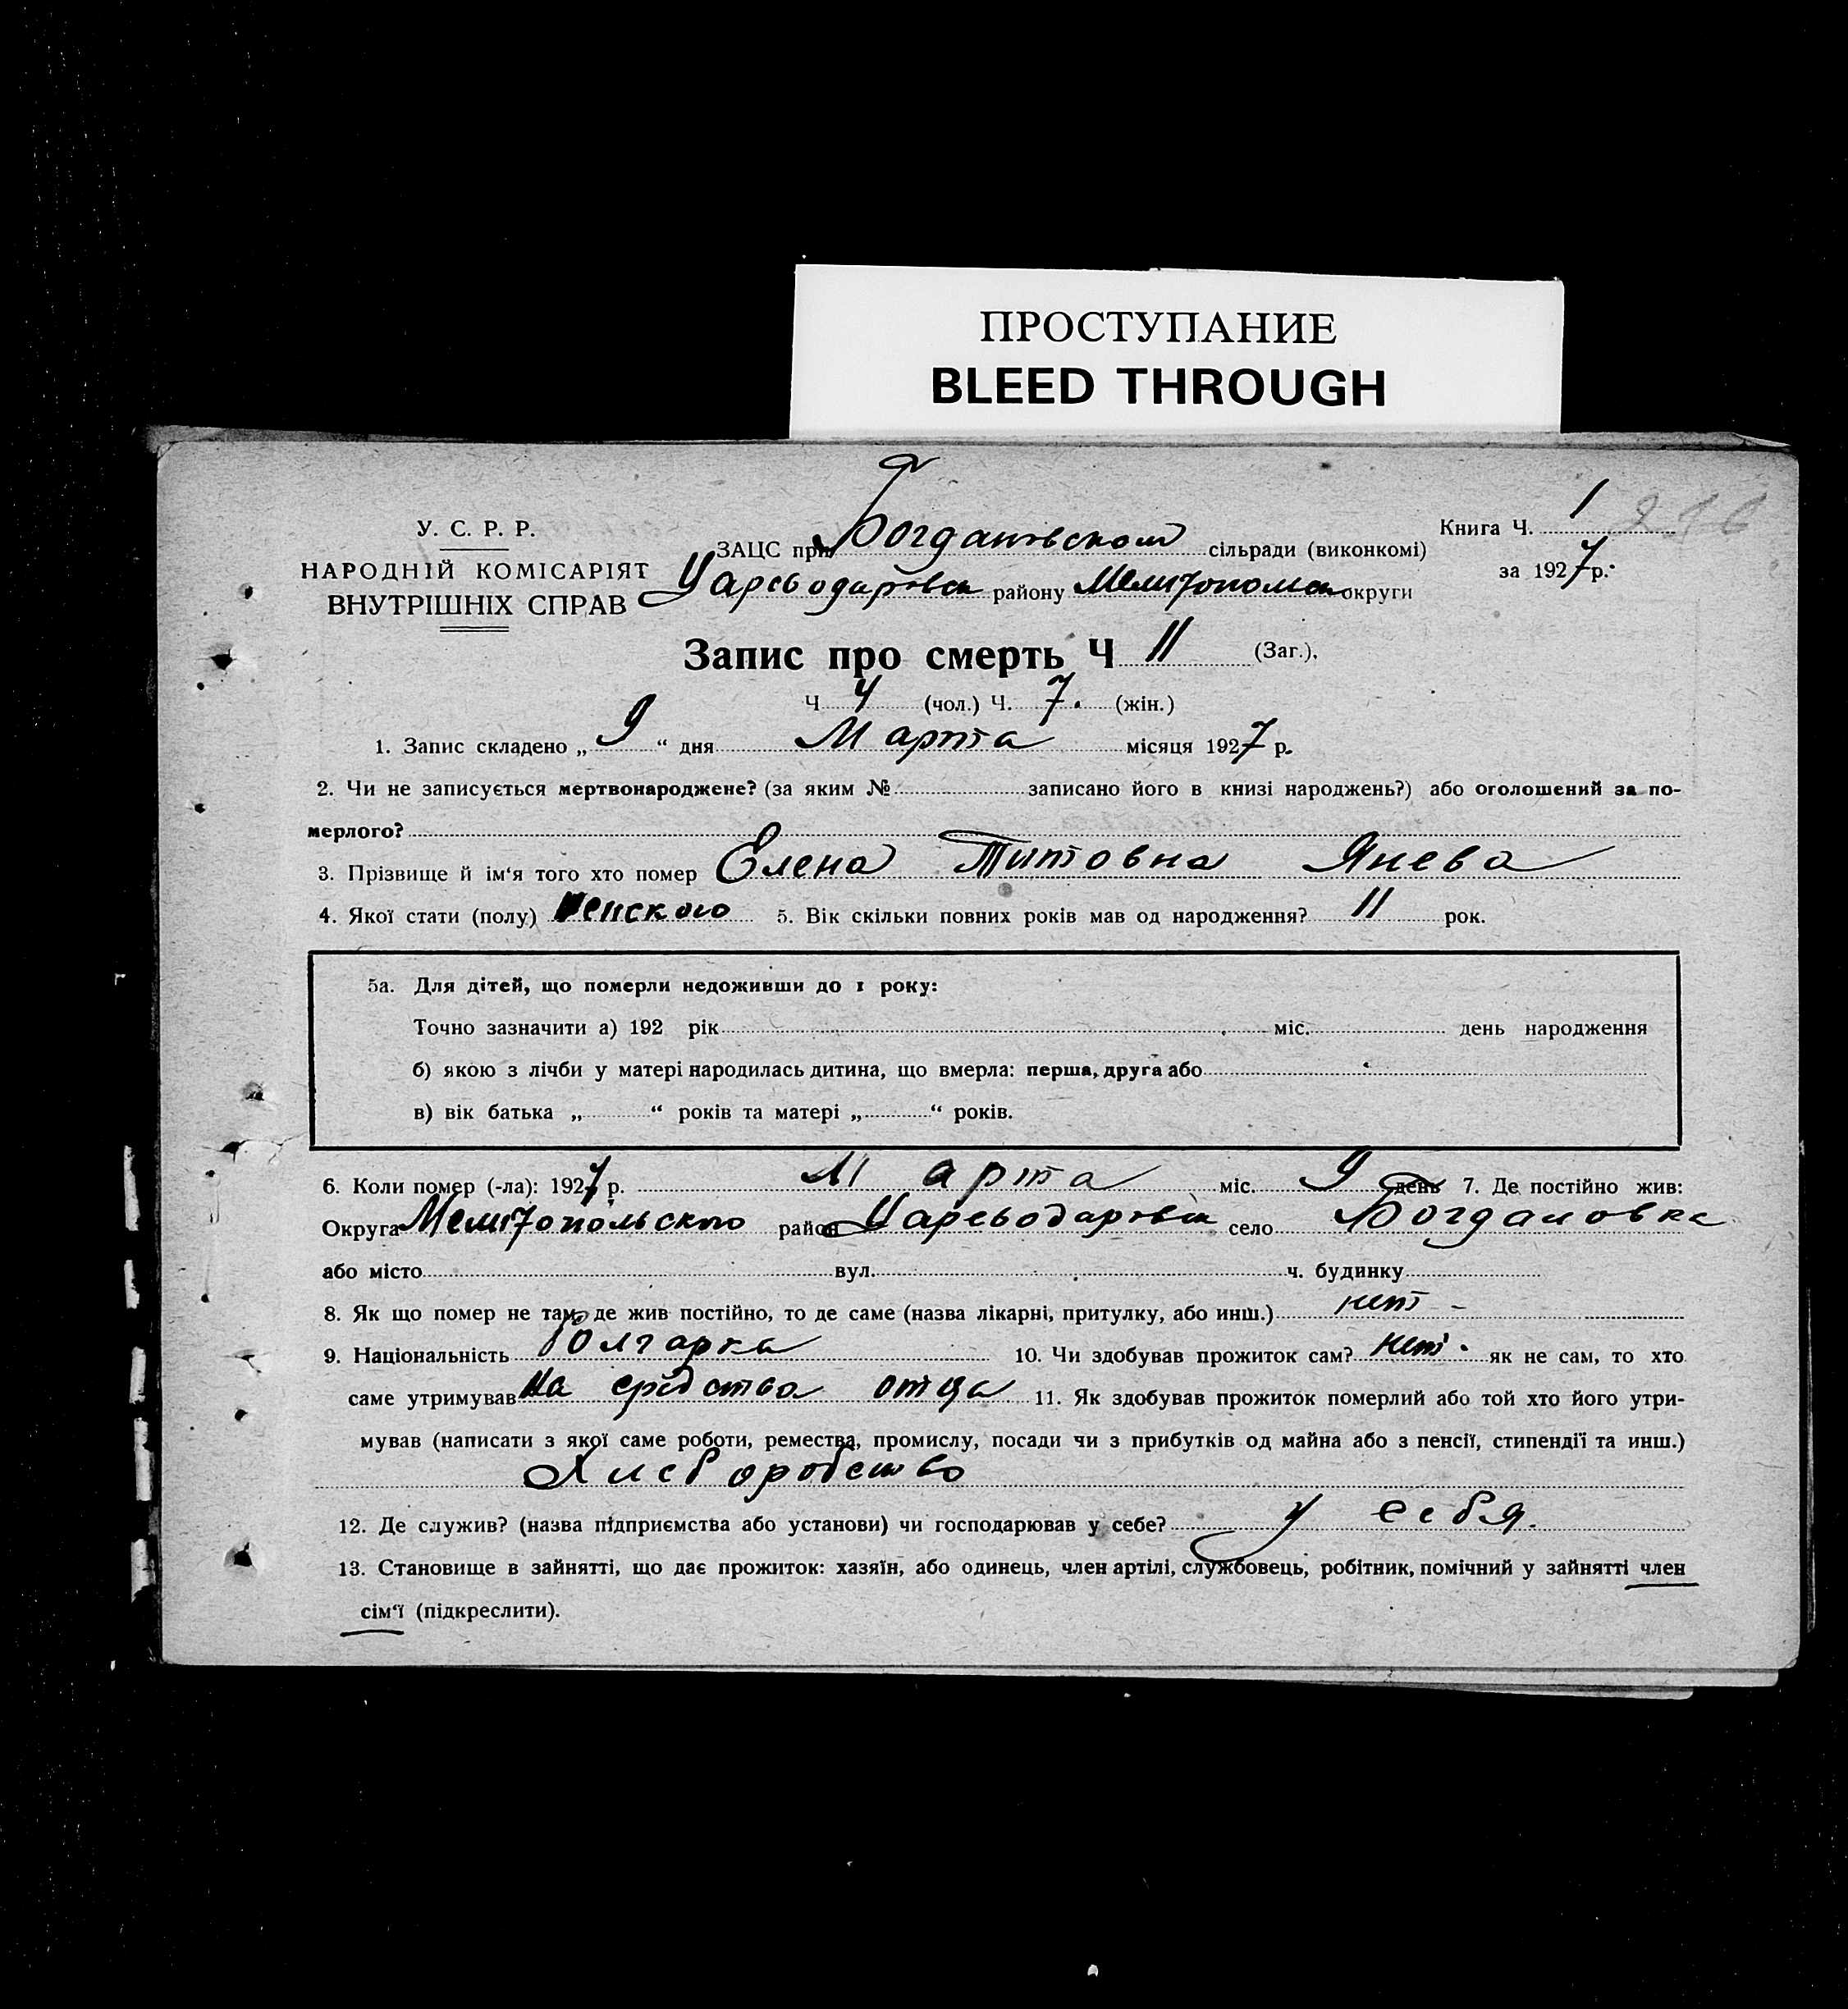 ПРОСТУПАНИЕ
BLEED THROUGH
У. С. Р. Р.
НАРОДНІЙ КОМІСАРІЯТ
ВНУТРІШНІХ СПРАВ
ЗАЦС при Богдановском сільради (виконкомі)
Цареводаровск району Мелитопольск округи
Книга Ч. 1
за 1927 р.
Запис про смерть Ч 11 (Заг.).
Ч 4 (чол.) Ч. 7. (жін.)
1. Запис складено „ 9 “ дня Марта місяця 1927 р.
2. Чи не записується мертвонароджене? (за яким № записано його в книзі народжень?) або оголошений за по-
мерлого?
3. Прізвище й ім‘я того хто помер Елена Титовна Янева
4. Якої стати (полу) женского 5. Вік скільки повних років мав од народження? 11 рок.
5а. Для дітей, що померли недоживши до 1 року:
Точно зазначити а) 192 рік міс. день народження
б) якою з лічби у матері народилась дитина, що вмерла: перша, друга або
в) вік батька „ “ років та матері „ “ років.
6. Коли помер (-ла): 1927 р. Марта міс. 9 день 7. Де постійно жив:
Округа Мелитопольского район Цареводаровск село Богдановка
або місто вул. ч. будинку
8. Як що помер не там, де жив постійно, то де саме (назва лікарні, притулку, або инш.) нет -
9. Національність Болгарка 10. Чи здобував прожиток сам? нет. як не сам, то хто
саме утримував на средства отца 11. Як здобував прожиток померлий або той хто його утри-
мував (написати з якої саме роботи, ремества, промислу, посади чи з прибутків од майна або з пенсії, стипендії та инш.)
Хлеборобство
12. Де служив? (назва підприємства або установи) чи господарював у себе? у себя.
13. Становище в зайнятті, що дає прожиток: хазяїн, або одинець, член артілі, службовець, робітник, помічний у зайнятті член
сім‘ї (підкреслити).